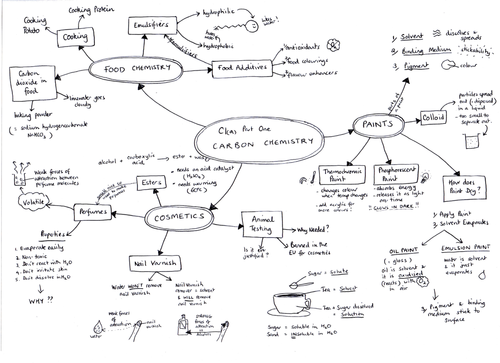 Cooking Protein
Cooking Potato
Cooking
Emulsifiers
hydrophilic
hydrophobic
FOOD CHEMISTRY
Food Additives
antioxidants
food colourings
flavour enhancers
Carbon dioxide in food
limewater goes cloudy
baking powder
(: sodium hydrogencarbonate
NaHCO3)
C1as Part One
CARBON CHEMISTRY
PAINTS
1, Solvent
dissolves & spreads
2, Binding Medium
3, Pigment
colour
Colloid
particles spread
out (dispersed)
in a liquid
too small to
separate out.
Thermochromic Paint
changes colour
when temp changes
add acrylic for
more colours!
Phosphorescent Paint
absorbs energy
releases it as light
over time
GLOWS IN DARK!!
How does Paint Dry?
1, Apply Paint
2, Solvent Evaporates
OIL PAINT
(= gloss)
Oil is solvent &
it is oxidised
(reacts) with O2
in air
EMULSION PAINT
water is solvent
& it just
evaporates
3, Pigment & binding
medium stick to
surface
COSMETICS
alcohol + carboxylic acid → ester + water
needs an acid catalyst
(H2SO4)
needs warming
(60°C)
Esters
Weak forces of
attraction between
perfume molecules
Volatile
Perfumes
Properties
1. Evaporate easily
2. Non-toxic
3. Don't react with H2O
4. Don't irritate skin
5. Don't dissolve in H2O
WHY??
Animal Testing
Why Needed?
Is it justified?
Banned in the
EU for cosmetics
Nail Varnish
Water WON'T remove
nail varnish
Nail Varnish
remover = solvent
& WILL remove
nail varnish
weak forces of
attraction
water
nail varnish
Sugar = Solute
Tea = Solvent
Tea + Sugar dissolved
= Solution
Sugar = soluble in H2O
Sand = insoluble in H2O